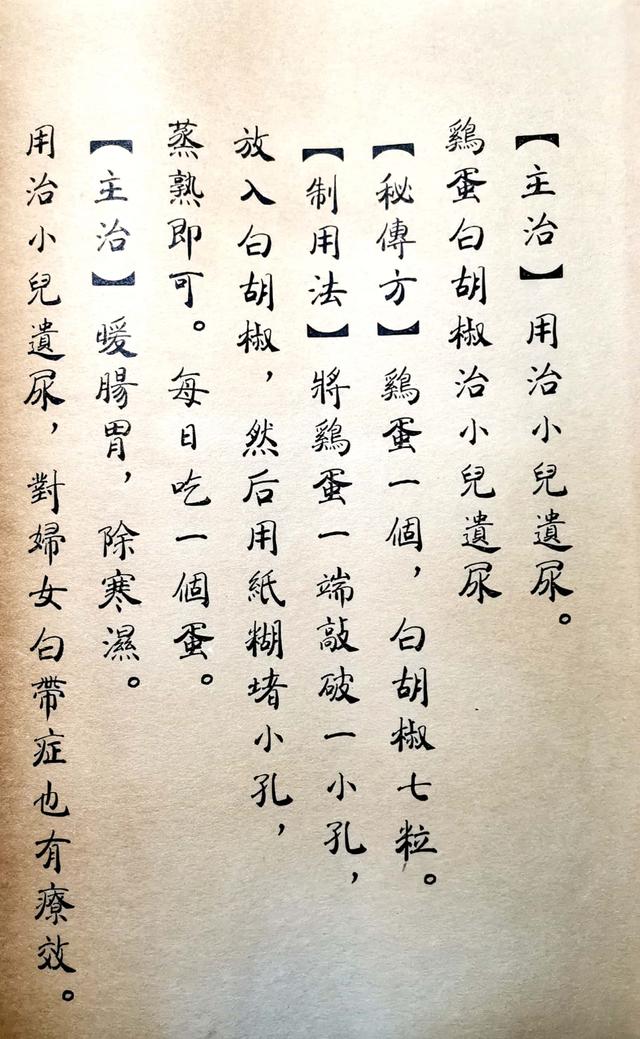 【主治】用治小兒遺尿。
鷄蛋白胡椒治小兒遺尿
【秘傳方】鷄蛋一個，白胡椒七粒。
【制用法】將鷄蛋一端敲破一小孔，
放入白胡椒，然后用紙糊堵小孔，
蒸熟即可。每日吃一個蛋。
【主治】暖腸胃，除寒濕。
用治小兒遺尿，對婦女白帶症也有療效。